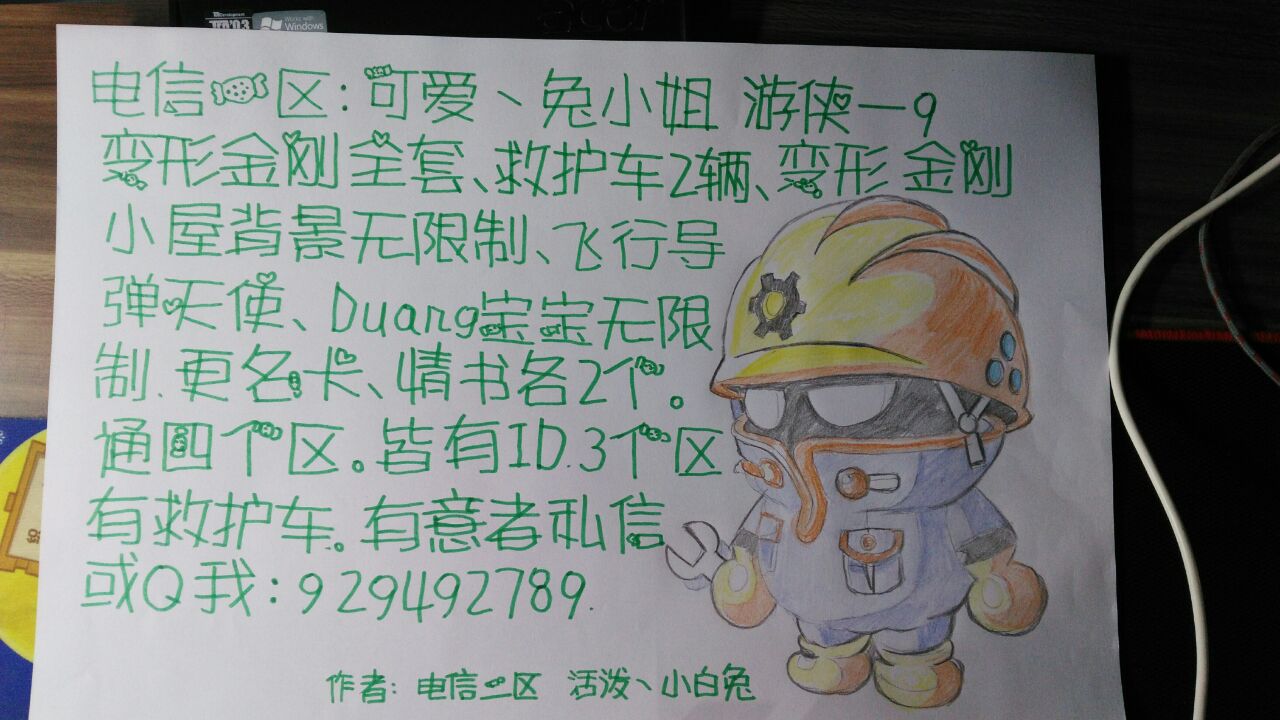 Works with
Windows
电信一区:可爱丶兔小姐 游侠一9
变形金刚全套、救护车2辆、变形金刚
小屋背景无限制、飞行导
弹天使、Duang宝宝无限
制.更名卡、情书各2个。
通四个区。皆有ID.3个区
有救护车。有意者私信
或Q我:929492789.
作者:电信二区 活泼丶小白兔